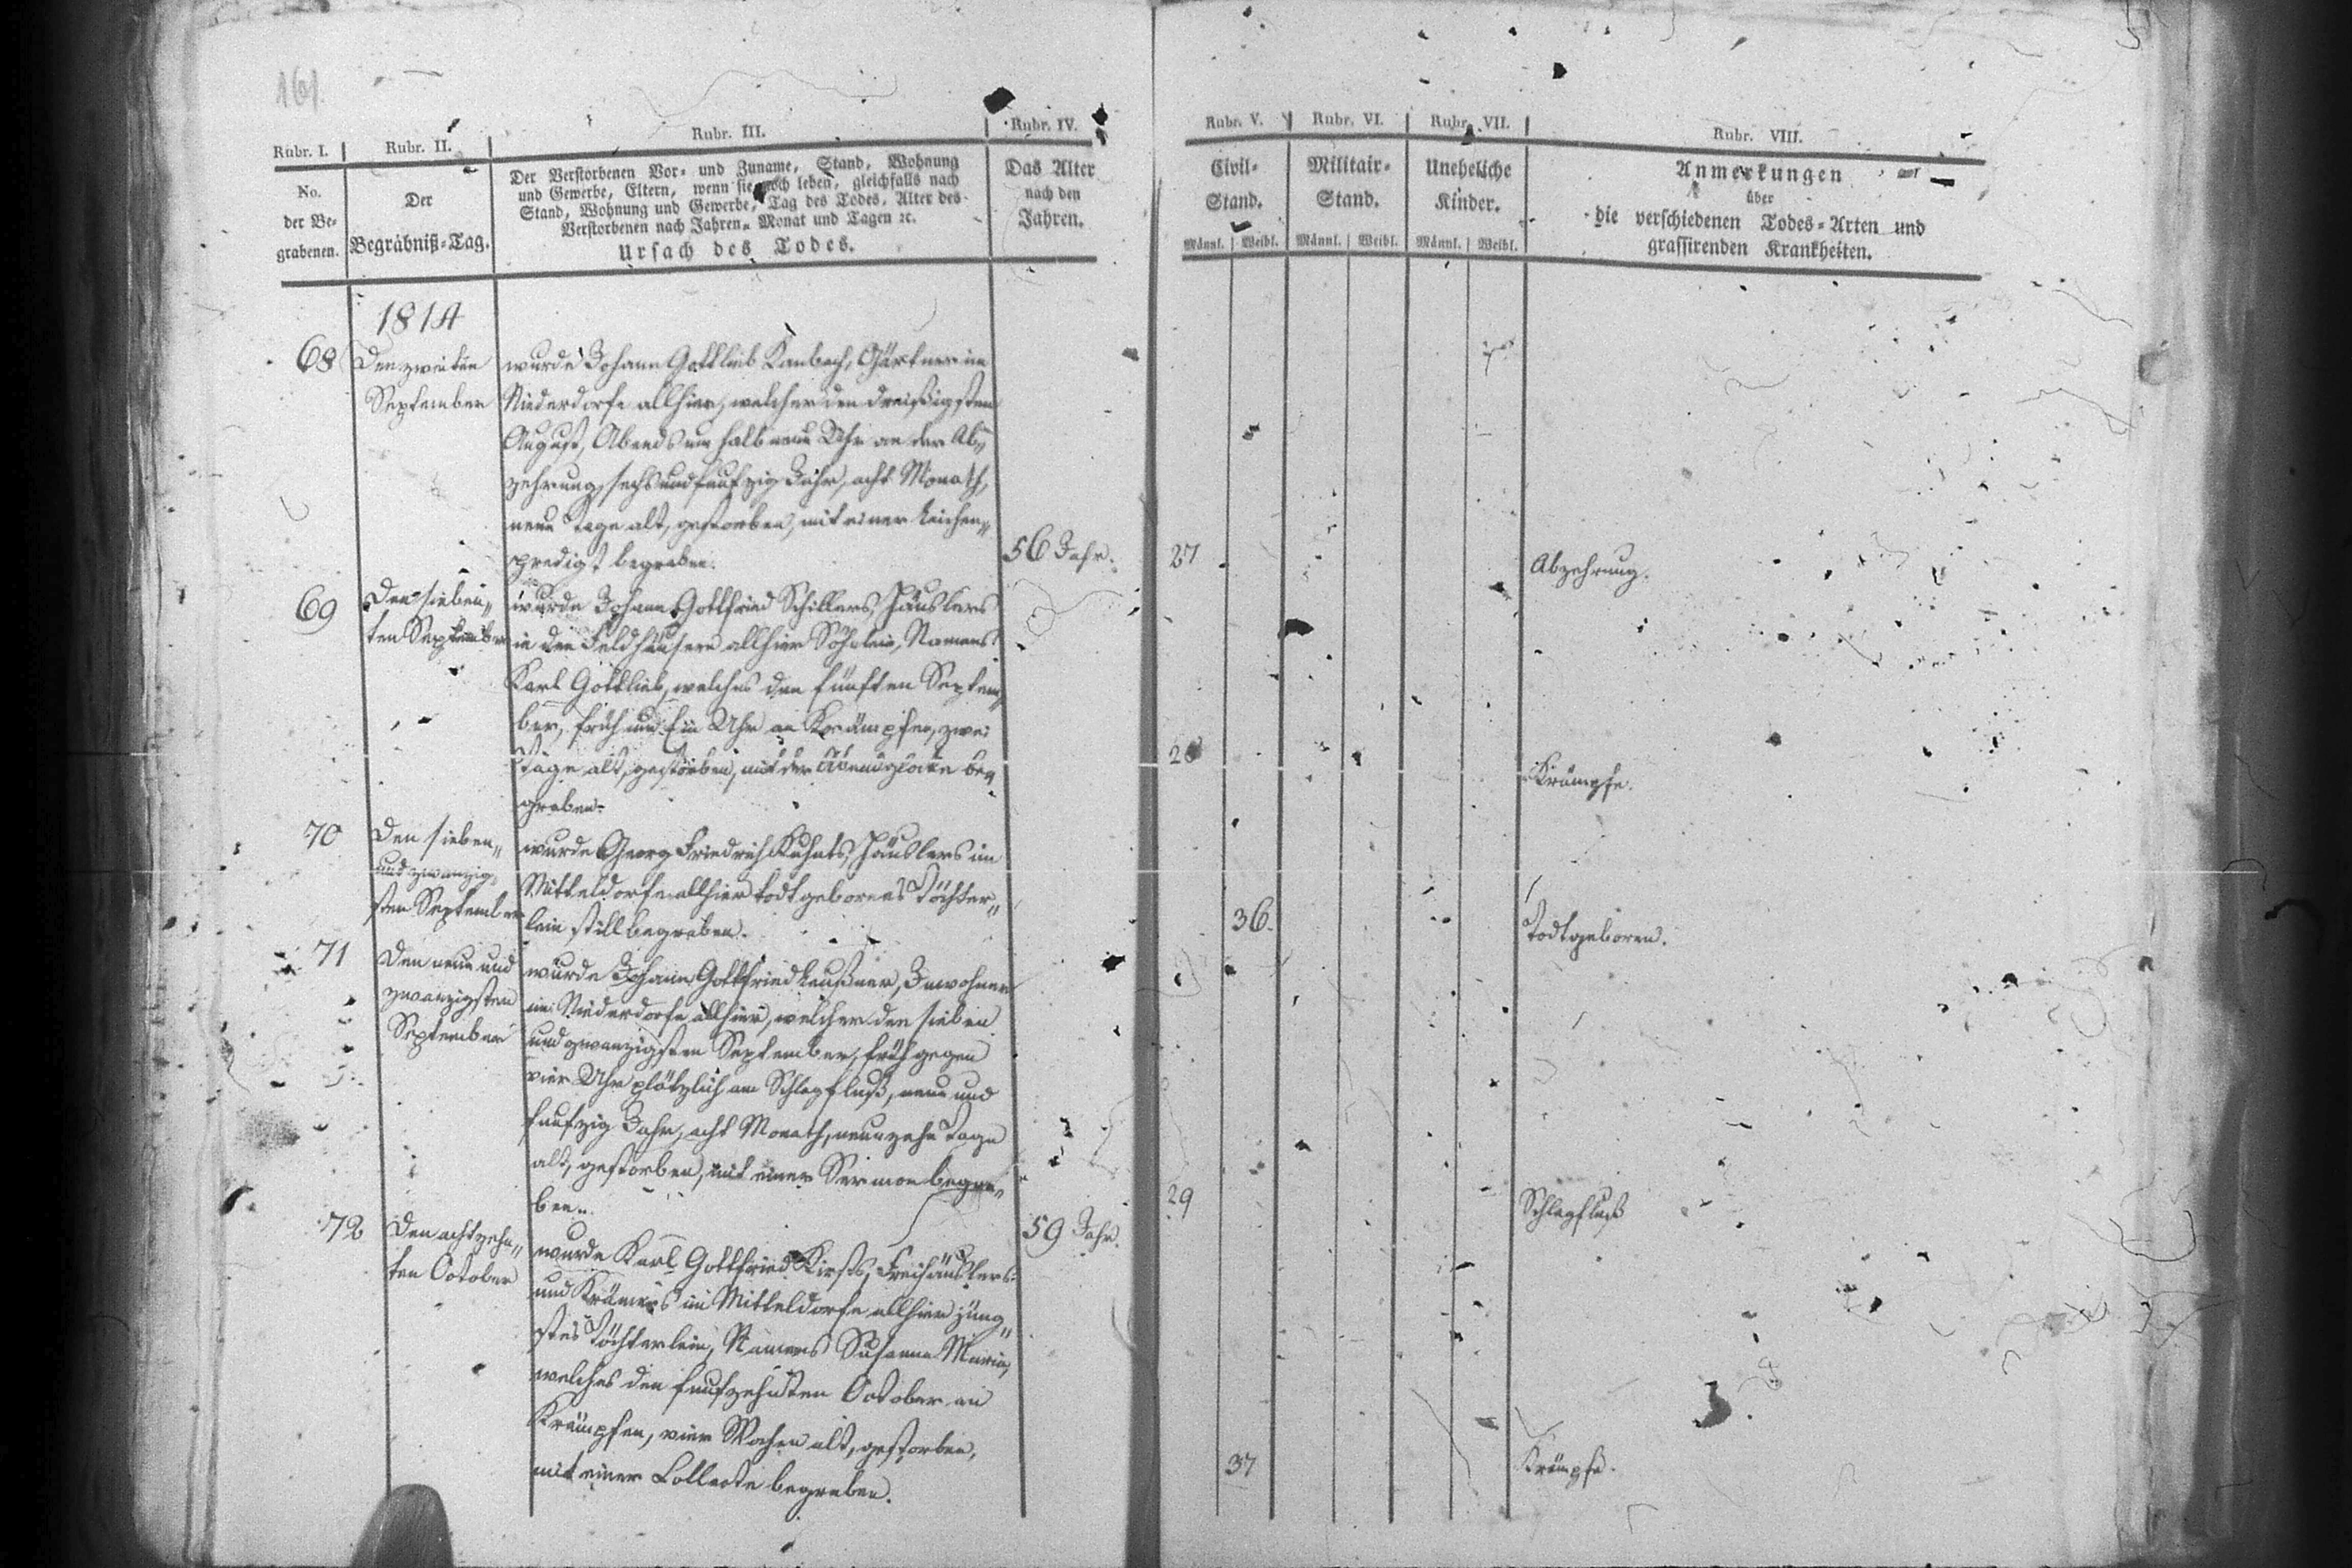 161.
Rubr. I.
Rubr. II.
Rubr. III.
Rubr. IV.
No.
der Be-
grabenen.
Der
Begräbniß-Tag.
Der Verstorbenen Vor- und Zuname, Stand, Wohnung
und Gewerbe, Eltern, wenn sie noch leben, gleichfalls nach
Stand, Wohnung und Gewerbe, Tag des Todes, Alter des
Verstorbenen nach Jahren, Monat und Tagen ꝛc.
Ursach des Todes.
Das Alter
nach den
Jahren.
1814
68
Den zweiten
September
wurde Johann Gottlieb Kambach, Gärtner im
Niederdorfe allhier, welcher den dreißigsten
August, Abends um halb neun Uhr an der Ab„
zehrung, sechs und funfzig Jahr, acht Monath,
neun Tage alt, gestorben, mit einer Leichen„
predigt begraben.
56 Jahr.
69
Den sieben„
ten September
wurde Johann Gottfried Schillers, Häuslers
in den Feldhäusern allhier Söhnlein, Namens
Karl Gottlieb, welches den fünften Septem„
ber, früh um Ein Uhr an Krämpfen, zwei
Tage alt, gestorben, mit der Abendglocke be„
graben.
70
Den sieben„
und zwanzig„
sten September
wurde Georg Friedrich Kuhnts, Häuslers im
Mitteldorfe allhier todtgebornes Töchter„
lein still begraben.
71
Den neun und
zwanzigsten
September
wurde Johann Gottfried Leußner, Inwohner
im Niederdorfe allhier, welcher den sieben
und zwanzigsten September, früh gegen
vier Uhr plötzlich am Schlagfluß, neun und
funfzig Jahr, acht Monath, neunzehn Tage
alt, gestorben, mit einer Sermon begra„
ben.
59 Jahr.
72
Den achtzehn„
ten October
wurde Karl Gottfried Kirsts, Freihäuslers
und Krämers im Mitteldorfe allhier jüng„
stes Töchterlein, Namens Susanna Maria,
welches den funfzehnten October an
Krämpfen, vier Wochen alt, gestorben,
mit einer Collecte begraben.
Rubr. V.
Rubr. VI.
Rubr. VII.
Rubr. VIII.
Civil-
Stand.
Militair-
Stand.
Uneheliche
Kinder.
Anmerkungen
über
die verschiedenen Todes-Arten und
grassirenden Krankheiten.
Männl. Weibl. Männl. Weibl. Männl. Weibl.
27
Abzehrung.
28
Krämpfe.
36.
Todtgeboren.
29
Schlagfluß
37
Krämpfe.